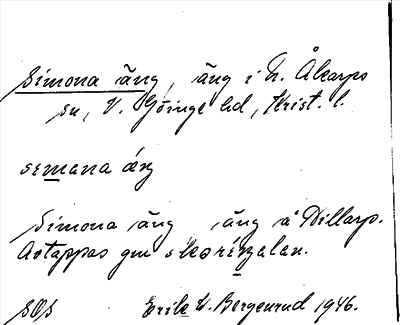 Simona äng, äng i N. Åkarps
sn, V. Göinge hd, Krist. l.
semana äng
Simona äng äng å Hillarp.
Avtappas gm
sos Erik W. Bergenrud 1946.